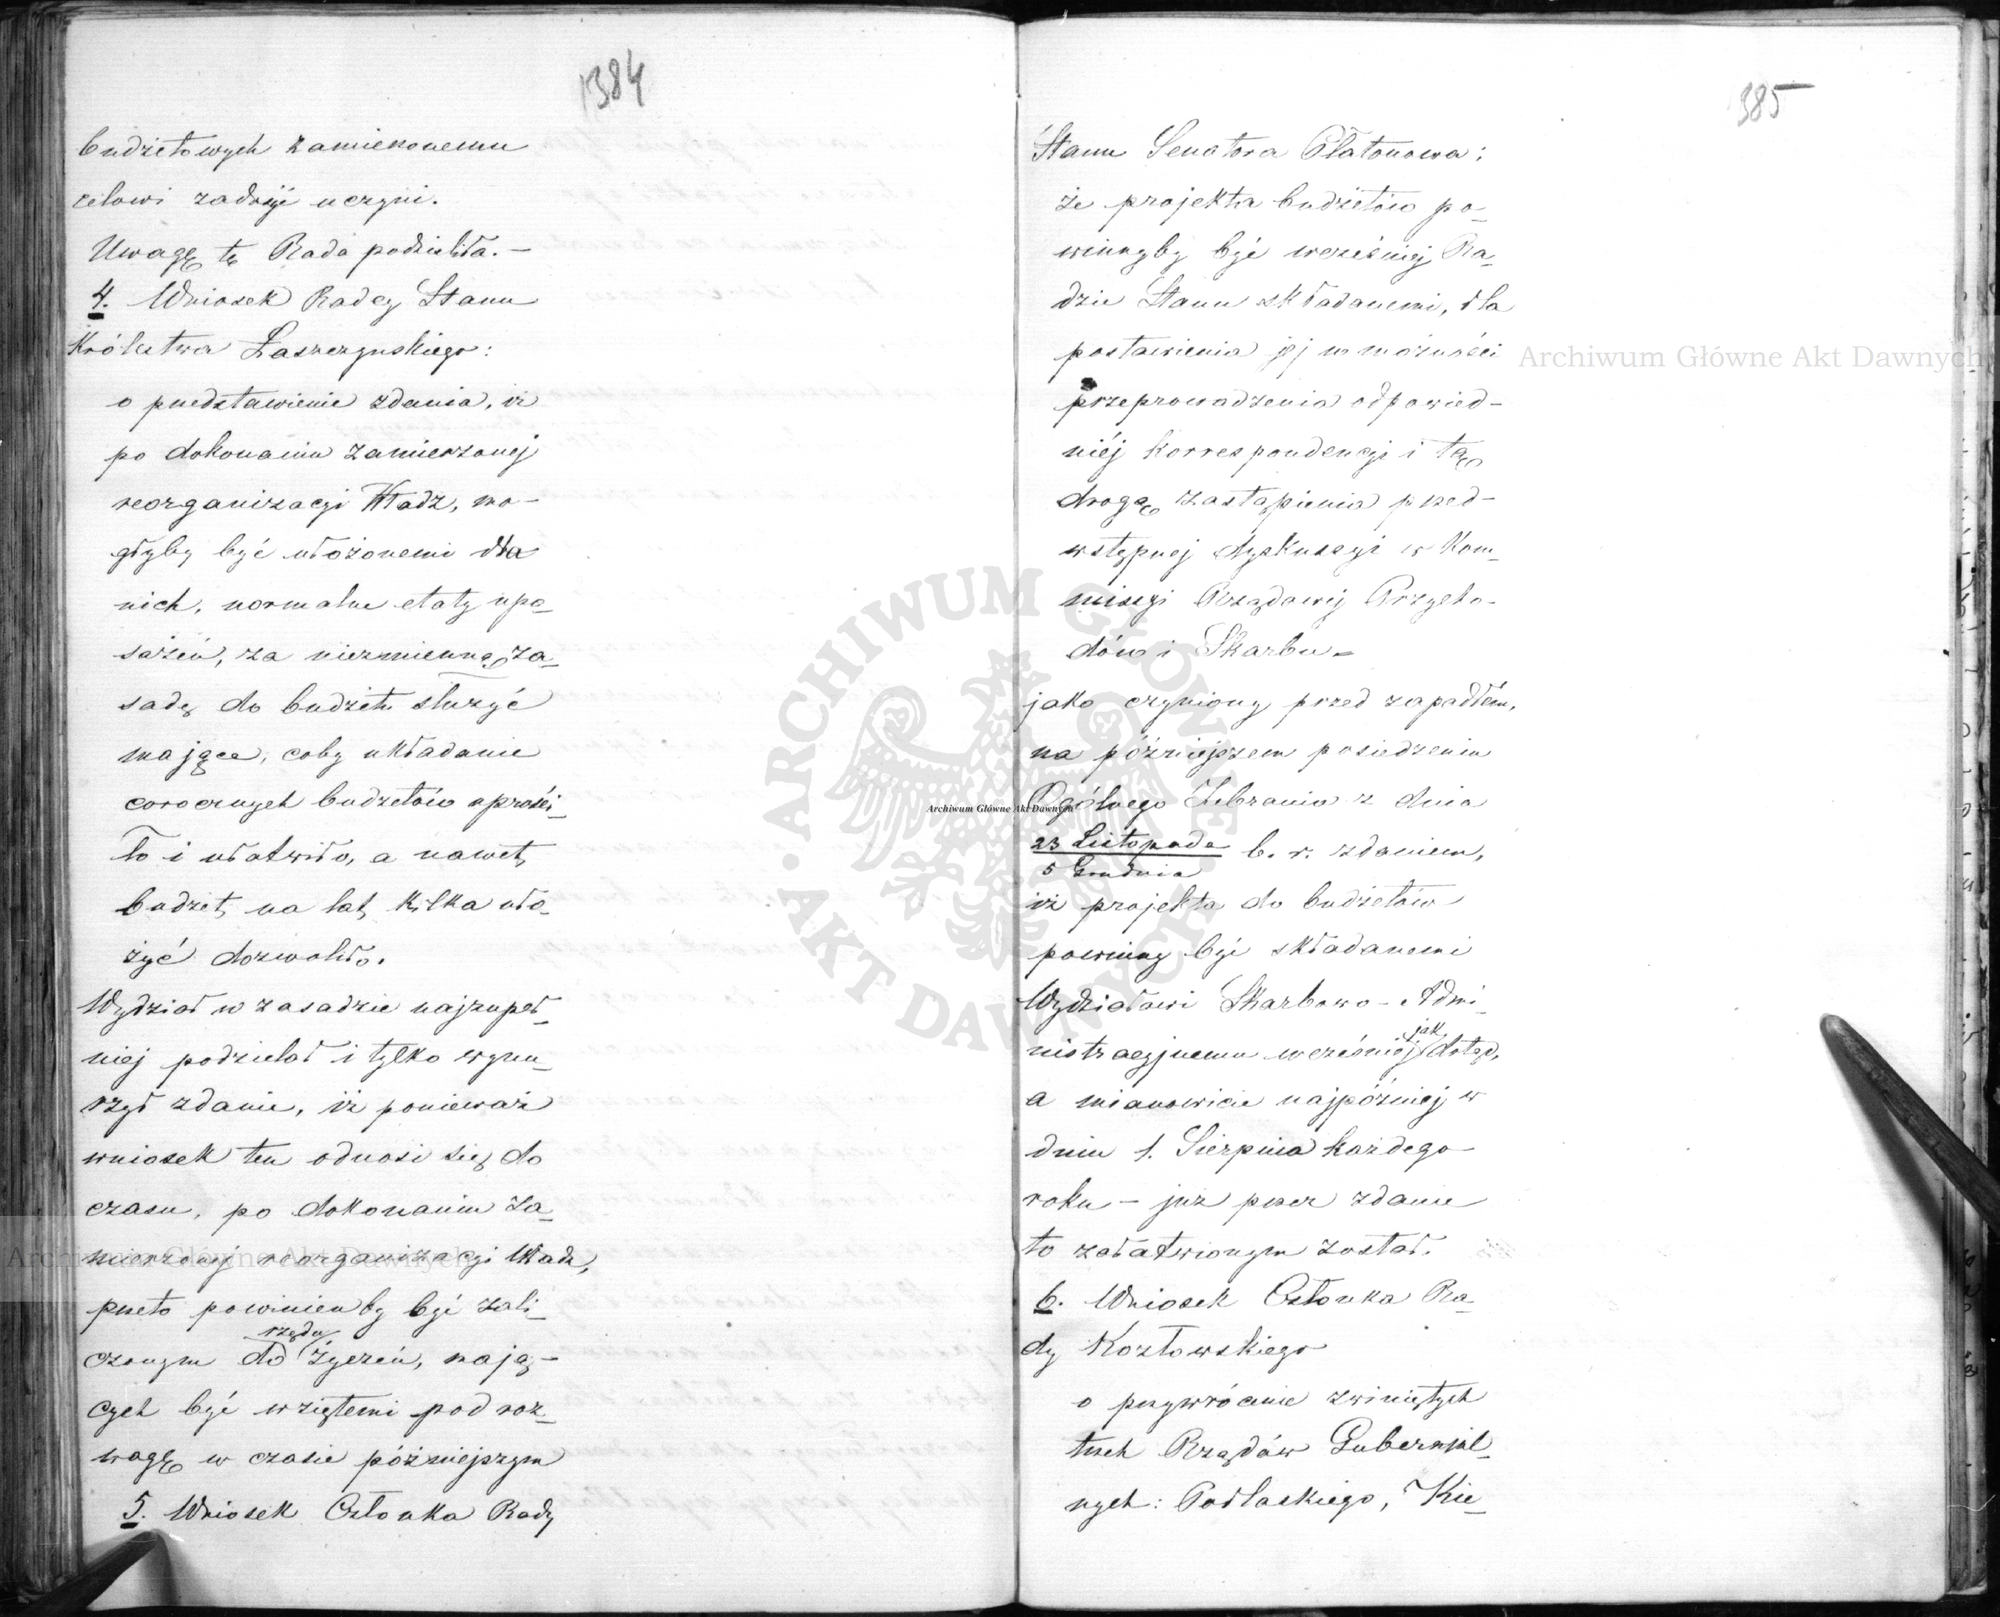 1384
budżetowych zamierzonemu
celowi zadosyć uczyni.
Uwagę tę Rada podzieliła. —
4. Wniosek Radcy Stanu
Królestwa Łaszczyńskiego:
o przedstawienie zdania, iż
po dokonaniu zamierzonej
reorganizacyi Władz, mo-
głyby być ułożonemi dla
nich, normalne etaty upo-
sażeń, za niezmienną za-
sadę do budżetu służyć
mające, coby układanie
corocznych budżetów uprości-
ło i ułatwiło, a nawet,
budżet, na lat, kilka uło-
żyć dozwoliło.
Wydział w zasadzie najzupeł-
niej podzielał i tylko wynu-
rzył zdanie, iż ponieważ
wniosek ten odnosi się do
czasu, po dokonaniu za-
mierzonej reorganizacyi Władz,
przeto powinienby być zali-
rzędu
czonym do życzeń, mają-
cych być wziętemi pod roz-
wagę w czasie późniejszym
5. Wniosek Członka Rady
385
Stanu Senatora Płatonowa:
że projekta budżetów po-
winnyby być wcześniej Ra-
dzie Stanu składanemi, dla
postawienia jej w możności
przeprowadzenia odpowied-
niéj korrespondencyi i tą
drogą zastąpienia przed-
wstępnej dyskussyi w Kom-
missyi Rządowej Przycho-
dów i Skarbu —
jako czyniony przed zapadłém,
na późniejszem posiedzeniu
Ogólnego Zebrania z dnia
23 Listopada b. r. zdaniem,
5 Grudnia
iż projekta do budżetów
powinny być składanemi
Wydziałowi Skarbowo-Admi-
jak
nistracyjnemu wcześniej dotąd,
a mianowicie najpóźniej w
dniu 1. Sierpnia każdego
roku — już przez zdanie
to załatwionym został.
6. Wniosek Członka Ra-
dy Kozłowskiego
o przywrócenie zwiniętych
trzech Rządów Gubernial-
nych: Podlaskiego, Kie-
Archiwum Główne Akt Dawnych
Archiwum Główne Akt Dawnych
Archiwum Główne Akt Dawnych
ARCHIWUM GŁÓWNE AKT DAWNYCH